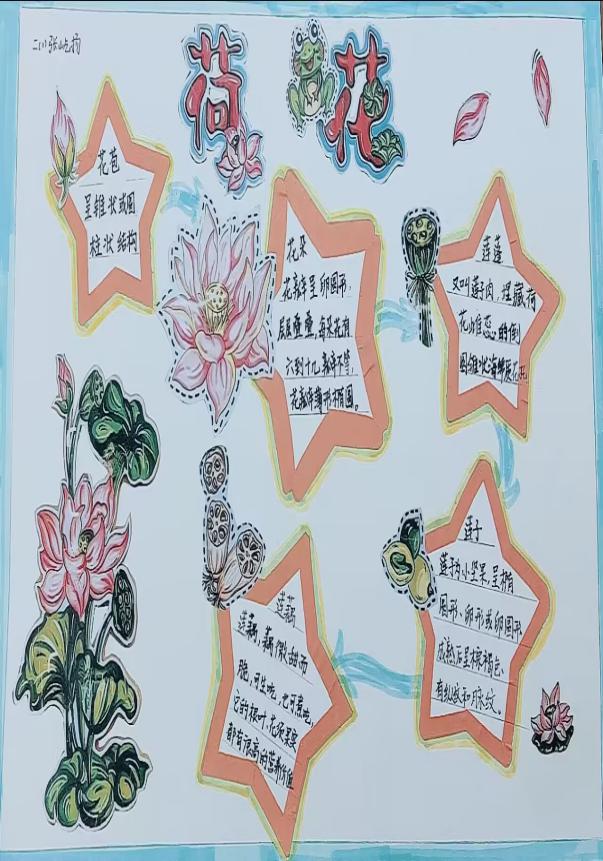 二(1)张屹扬
荷花
花苞
呈锥状或圆
柱状结构
花朵
花瓣呈卵圆形,
层层叠叠,每朵花有
六到十几瓣不等,
花瓣形椭圆。
莲蓬
又叫莲子肉,埋藏荷
花雌蕊的倒
圆锥状海绵质花托
莲子
莲子为小坚果,呈椭
圆形、卵形或卵圆形
成熟后呈棕褐色、
有纵纹和脉纹。
莲藕
莲藕,藕微甜而
脆,可生吃,也可煮吃,
它的根叶、花须果实
都有很高的营养价值